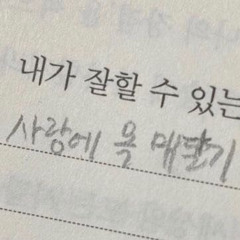 내가 잘할 수 있는
사랑에 목 매달기